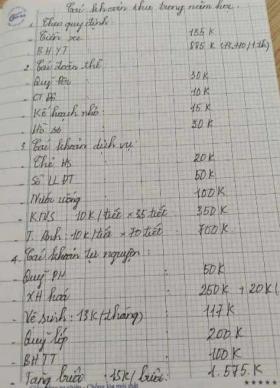 Các khoản thu trong năm học
1. Theo quy định
- Tiền xe 135 K
- BHYT 885 K
2. Các đoàn thể
- Quỹ Đội 30 K
- CT Đỏ 10 K
- Kế hoạch nhỏ: 15 K
- Hồ sơ 30 K
3. Các khoản dịch vụ
- Thẻ HS 20 K
- Sổ LLĐT 50 K
- Nước uống 100 K
- KNS 10K/tiết x 35 tiết 350 K
- T. Anh: 10K/tiết x 70 tiết 700 K
4. Các khoản tự nguyện:
- Quỹ PH 50 K
- XH hoá 250K + 20K(
- Vệ sinh: 13K/tháng) 117 K
- Quỹ lớp 200 K
- BHTT 100 K
- Tang bước 15K/bước: 1.575 K